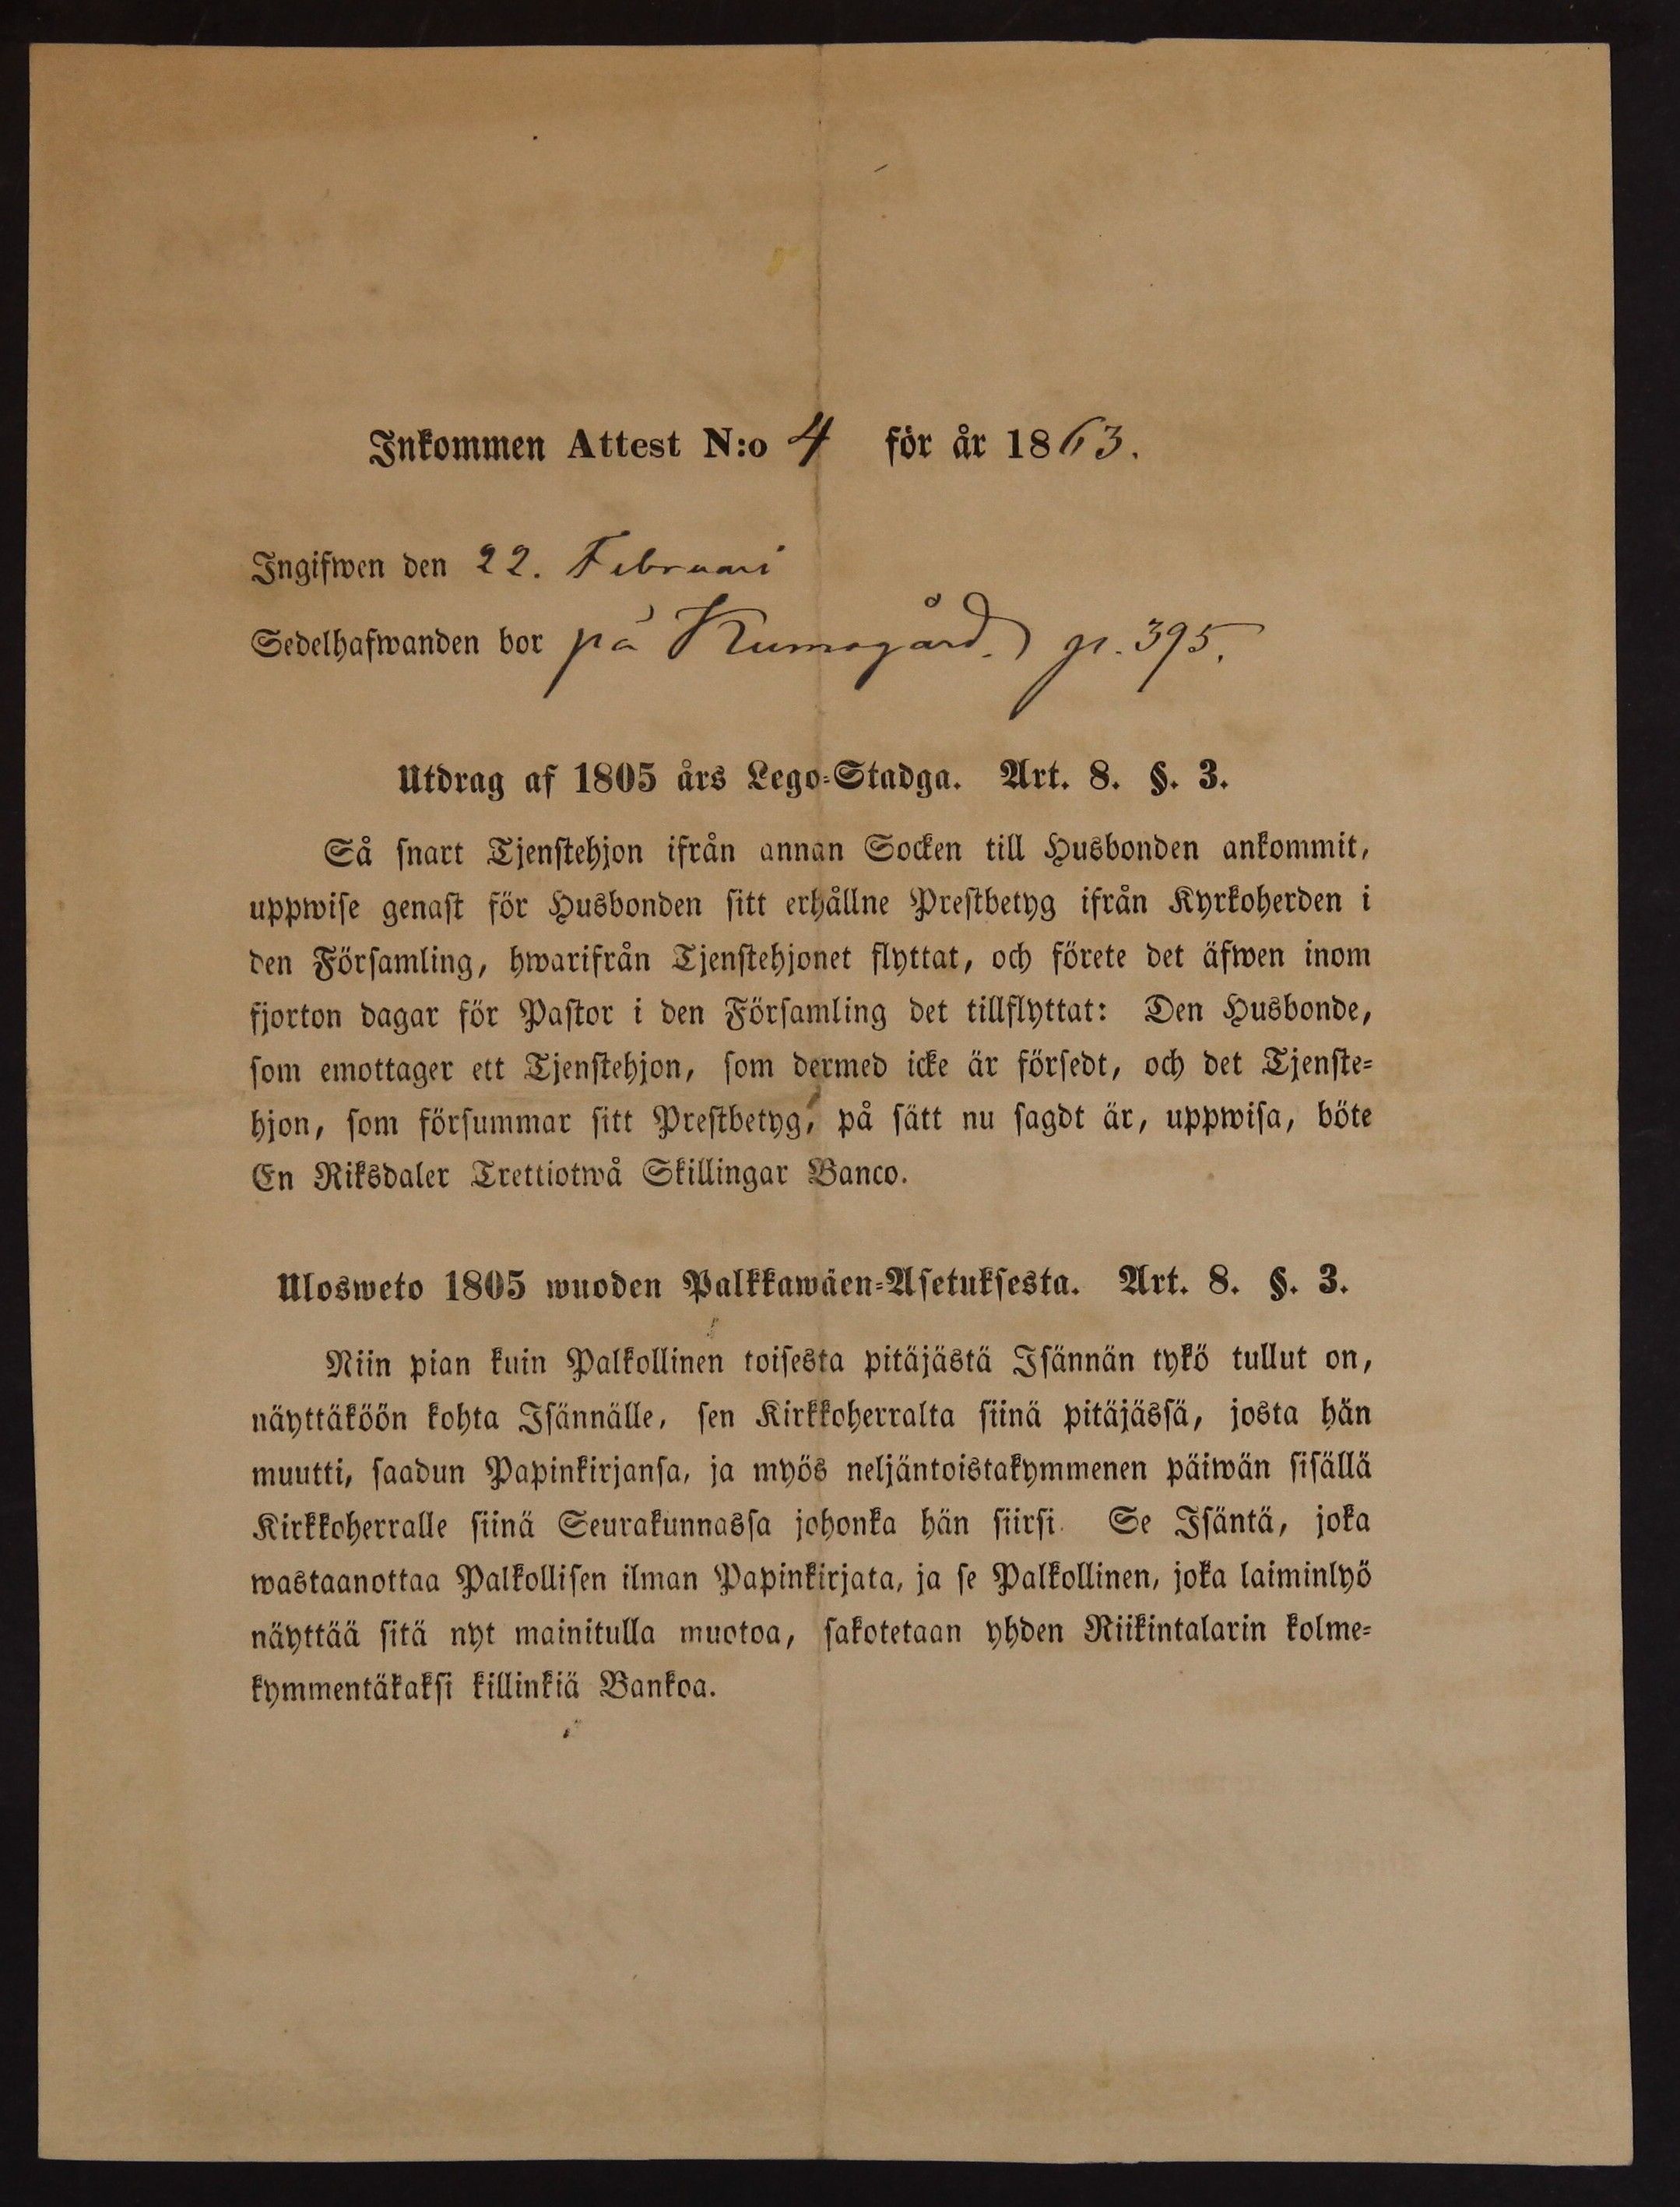 Inkommen Attest N:o 4 för år 1863.
Ingifwen den 22. Februari
Sedelhafwanden bor på Kumogård. p. 395.
Utdrag af 1805 års Lego-Stadga. Art. 8. §. 3.
Så snart Tjenstehjon ifrån annan Socken till Husbonden ankommit,
uppwise genast för Husbonden sitt erhållne Prestbetyg ifrån Kyrkoherden i
den Församling, hwarifrån Tjenstehjonet flyttat, och förete det äfwen inom
fjorton dagar för Pastor i den Församling det tillflyttat: Den Husbonde,
som emottager ett Tjenstehjon, som dermed icke är försedt, och det Tjenste-
hjon, som försummar sitt Prestbetyg, på sätt nu sagdt är, uppwisa, böte
En Riksdaler Trettiotwå Skillingar Banco.
Ulosweto 1805 wuoden Palkkawäen-Asetuksesta. Art. 8. §. 3.
Niin pian kuin Palkollinen toisesta pitäjästä Isännän tykö tullut on,
näyttäköön kohta Isännälle, sen Kirkkoherralta siinä pitäjässä, josta hän
muutti, saadun Papinkirjansa, ja myös neljäntoistakymmenen päiwän sisällä
Kirkkoherralle siinä Seurakunnassa johonka hän siirsi. Se Isäntä, joka
wastaanottaa Palkollisen ilman Papinkirjata, ja se Palkollinen, joka laiminlyö
näyttää sitä nyt mainitulla muotoa, sakotetaan yhden Riikintalarin kolme-
kymmentäkaksi killinkiä Bankoa.